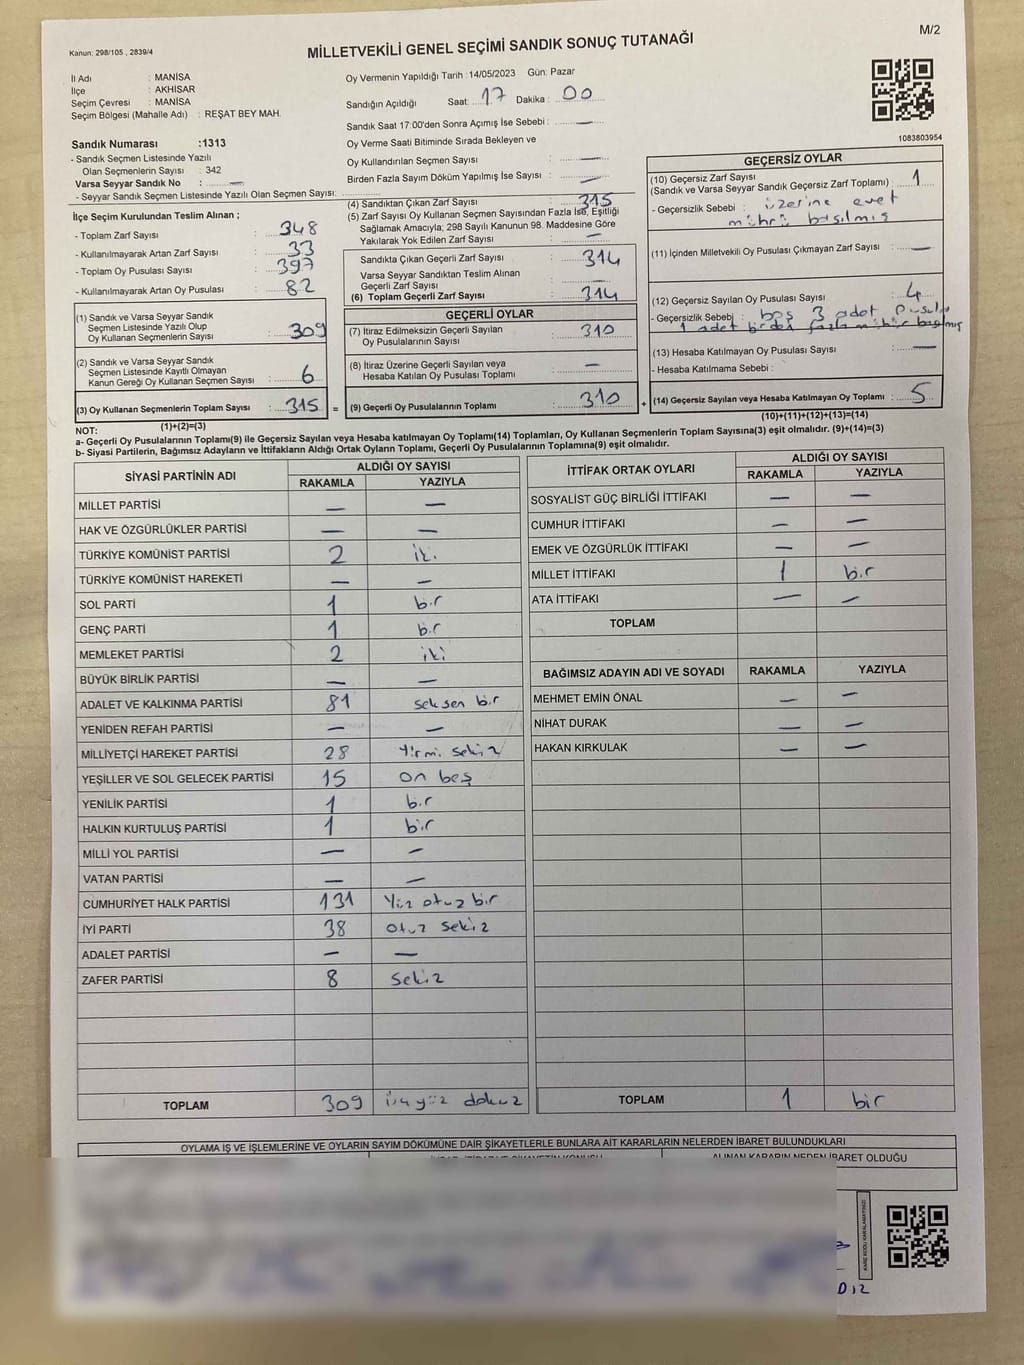 M/2
Kanun: 298/105 , 2839/4
MİLLETVEKİLİ GENEL SEÇİMİ SANDIK SONUÇ TUTANAĞI
İl Adı : MANİSA
İlçe : AKHİSAR
Seçim Çevresi : MANİSA
Seçim Bölgesi (Mahalle Adı) : REŞAT BEY MAH.
Sandık Numarası :1313
- Sandık Seçmen Listesinde Yazılı
Olan Seçmenlerin Sayısı : 342
Varsa Seyyar Sandık No : —
- Seyyar Sandık Seçmen Listesinde Yazılı Olan Seçmen Sayısı:
Oy Vermenin Yapıldığı Tarih :14/05/2023 Gün: Pazar
Sandığın Açıldığı Saat: 17 Dakika : 00
Sandık Saat 17:00'den Sonra Açımış İse Sebebi : —
Oy Verme Saati Bitiminde Sırada Bekleyen ve
Oy Kullandırılan Seçmen Sayısı : —
Birden Fazla Sayım Döküm Yapılmış İse Sayısı : —
1083803954
İlçe Seçim Kurulundan Teslim Alınan ;
- Toplam Zarf Sayısı : 348
- Kullanılmayarak Artan Zarf Sayısı : 33
- Toplam Oy Pusulası Sayısı : 397
- Kullanılmayarak Artan Oy Pusulası : 82
(1) Sandık ve Varsa Seyyar Sandık
Seçmen Listesinde Yazılı Olup
Oy Kullanan Seçmenlerin Sayısı : 309
(2) Sandık ve Varsa Seyyar Sandık
Seçmen Listesinde Kayıtlı Olmayan
Kanun Gereği Oy Kullanan Seçmen Sayısı : 6
(3) Oy Kullanan Seçmenlerin Toplam Sayısı : 315 =
(1)+(2)=(3)
(4) Sandıktan Çıkan Zarf Sayısı : 315
(5) Zarf Sayısı Oy Kullanan Seçmen Sayısından Fazla İse, Eşitliği
Sağlamak Amacıyla; 298 Sayılı Kanunun 98. Maddesine Göre
Yakılarak Yok Edilen Zarf Sayısı : —
Sandıkta Çıkan Geçerli Zarf Sayısı : 314
Varsa Seyyar Sandıktan Teslim Alınan
Geçerli Zarf Sayısı :
(6) Toplam Geçerli Zarf Sayısı : 314
GEÇERLİ OYLAR
(7) İtiraz Edilmeksizin Geçerli Sayılan
Oy Pusulalarının Sayısı : 310
(8) İtiraz Üzerine Geçerli Sayılan veya
Hesaba Katılan Oy Pusulası Toplamı : —
(9) Geçerli Oy Pusulalarının Toplamı : 310 +
GEÇERSİZ OYLAR
(10) Geçersiz Zarf Sayısı
(Sandık ve Varsa Seyyar Sandık Geçersiz Zarf Toplamı) : 1
- Geçersizlik Sebebi : üzerine evet
mührü basılmış
(11) İçinden Milletvekili Oy Pusulası Çıkmayan Zarf Sayısı : —
(12) Geçersiz Sayılan Oy Pusulası Sayısı : 4
- Geçersizlik Sebebi : boş 3 adet pusula
1 adet birden fazla mühür basılmış
(13) Hesaba Katılmayan Oy Pusulası Sayısı : —
- Hesaba Katılmama Sebebi :
(14) Geçersiz Sayılan veya Hesaba Katılmayan Oy Toplamı : 5
(10)+(11)+(12)+(13)=(14)
NOT:
a- Geçerli Oy Pusulalarının Toplamı(9) ile Geçersiz Sayılan veya Hesaba katılmayan Oy Toplamı(14) Toplamları, Oy Kullanan Seçmenlerin Toplam Sayısına(3) eşit olmalıdır. (9)+(14)=(3)
b- Siyasi Partilerin, Bağımsız Adayların ve İttifakların Aldığı Ortak Oyların Toplamı, Geçerli Oy Pusulalarının Toplamına(9) eşit olmalıdır.
SİYASİ PARTİNİN ADI ALDIĞI OY SAYISI
RAKAMLA YAZIYLA
MİLLET PARTİSİ — —
HAK VE ÖZGÜRLÜKLER PARTİSİ — —
TÜRKİYE KOMÜNİST PARTİSİ 2 iki
TÜRKİYE KOMÜNİST HAREKETİ — —
SOL PARTİ 1 bir
GENÇ PARTİ 1 bir
MEMLEKET PARTİSİ 2 iki
BÜYÜK BİRLİK PARTİSİ — —
ADALET VE KALKINMA PARTİSİ 81 seksen bir
YENİDEN REFAH PARTİSİ — —
MİLLİYETÇİ HAREKET PARTİSİ 28 Yirmi sekiz
YEŞİLLER VE SOL GELECEK PARTİSİ 15 on beş
YENİLİK PARTİSİ 1 bir
HALKIN KURTULUŞ PARTİSİ 1 bir
MİLLİ YOL PARTİSİ — —
VATAN PARTİSİ — —
CUMHURİYET HALK PARTİSİ 131 Yüz otuz bir
İYİ PARTİ 38 otuz sekiz
ADALET PARTİSİ — —
ZAFER PARTİSİ 8 sekiz
TOPLAM 309 üçyüz dokuz
İTTİFAK ORTAK OYLARI ALDIĞI OY SAYISI
RAKAMLA YAZIYLA
SOSYALİST GÜÇ BİRLİĞİ İTTİFAKI — —
CUMHUR İTTİFAKI — —
EMEK VE ÖZGÜRLÜK İTTİFAKI — —
MİLLET İTTİFAKI 1 bir
ATA İTTİFAKI — —
TOPLAM
BAĞIMSIZ ADAYIN ADI VE SOYADI RAKAMLA YAZIYLA
MEHMET EMİN ÖNAL — —
NİHAT DURAK — —
HAKAN KIRKULAK — —
TOPLAM 1 bir
OYLAMA İŞ VE İŞLEMLERİNE VE OYLARIN SAYIM DÖKÜMÜNE DAİR ŞİKAYETLERLE BUNLARA AİT KARARLARIN NELERDEN İBARET BULUNDUKLARI
ALINAN KARARIN NEDEN İBARET OLDUĞU